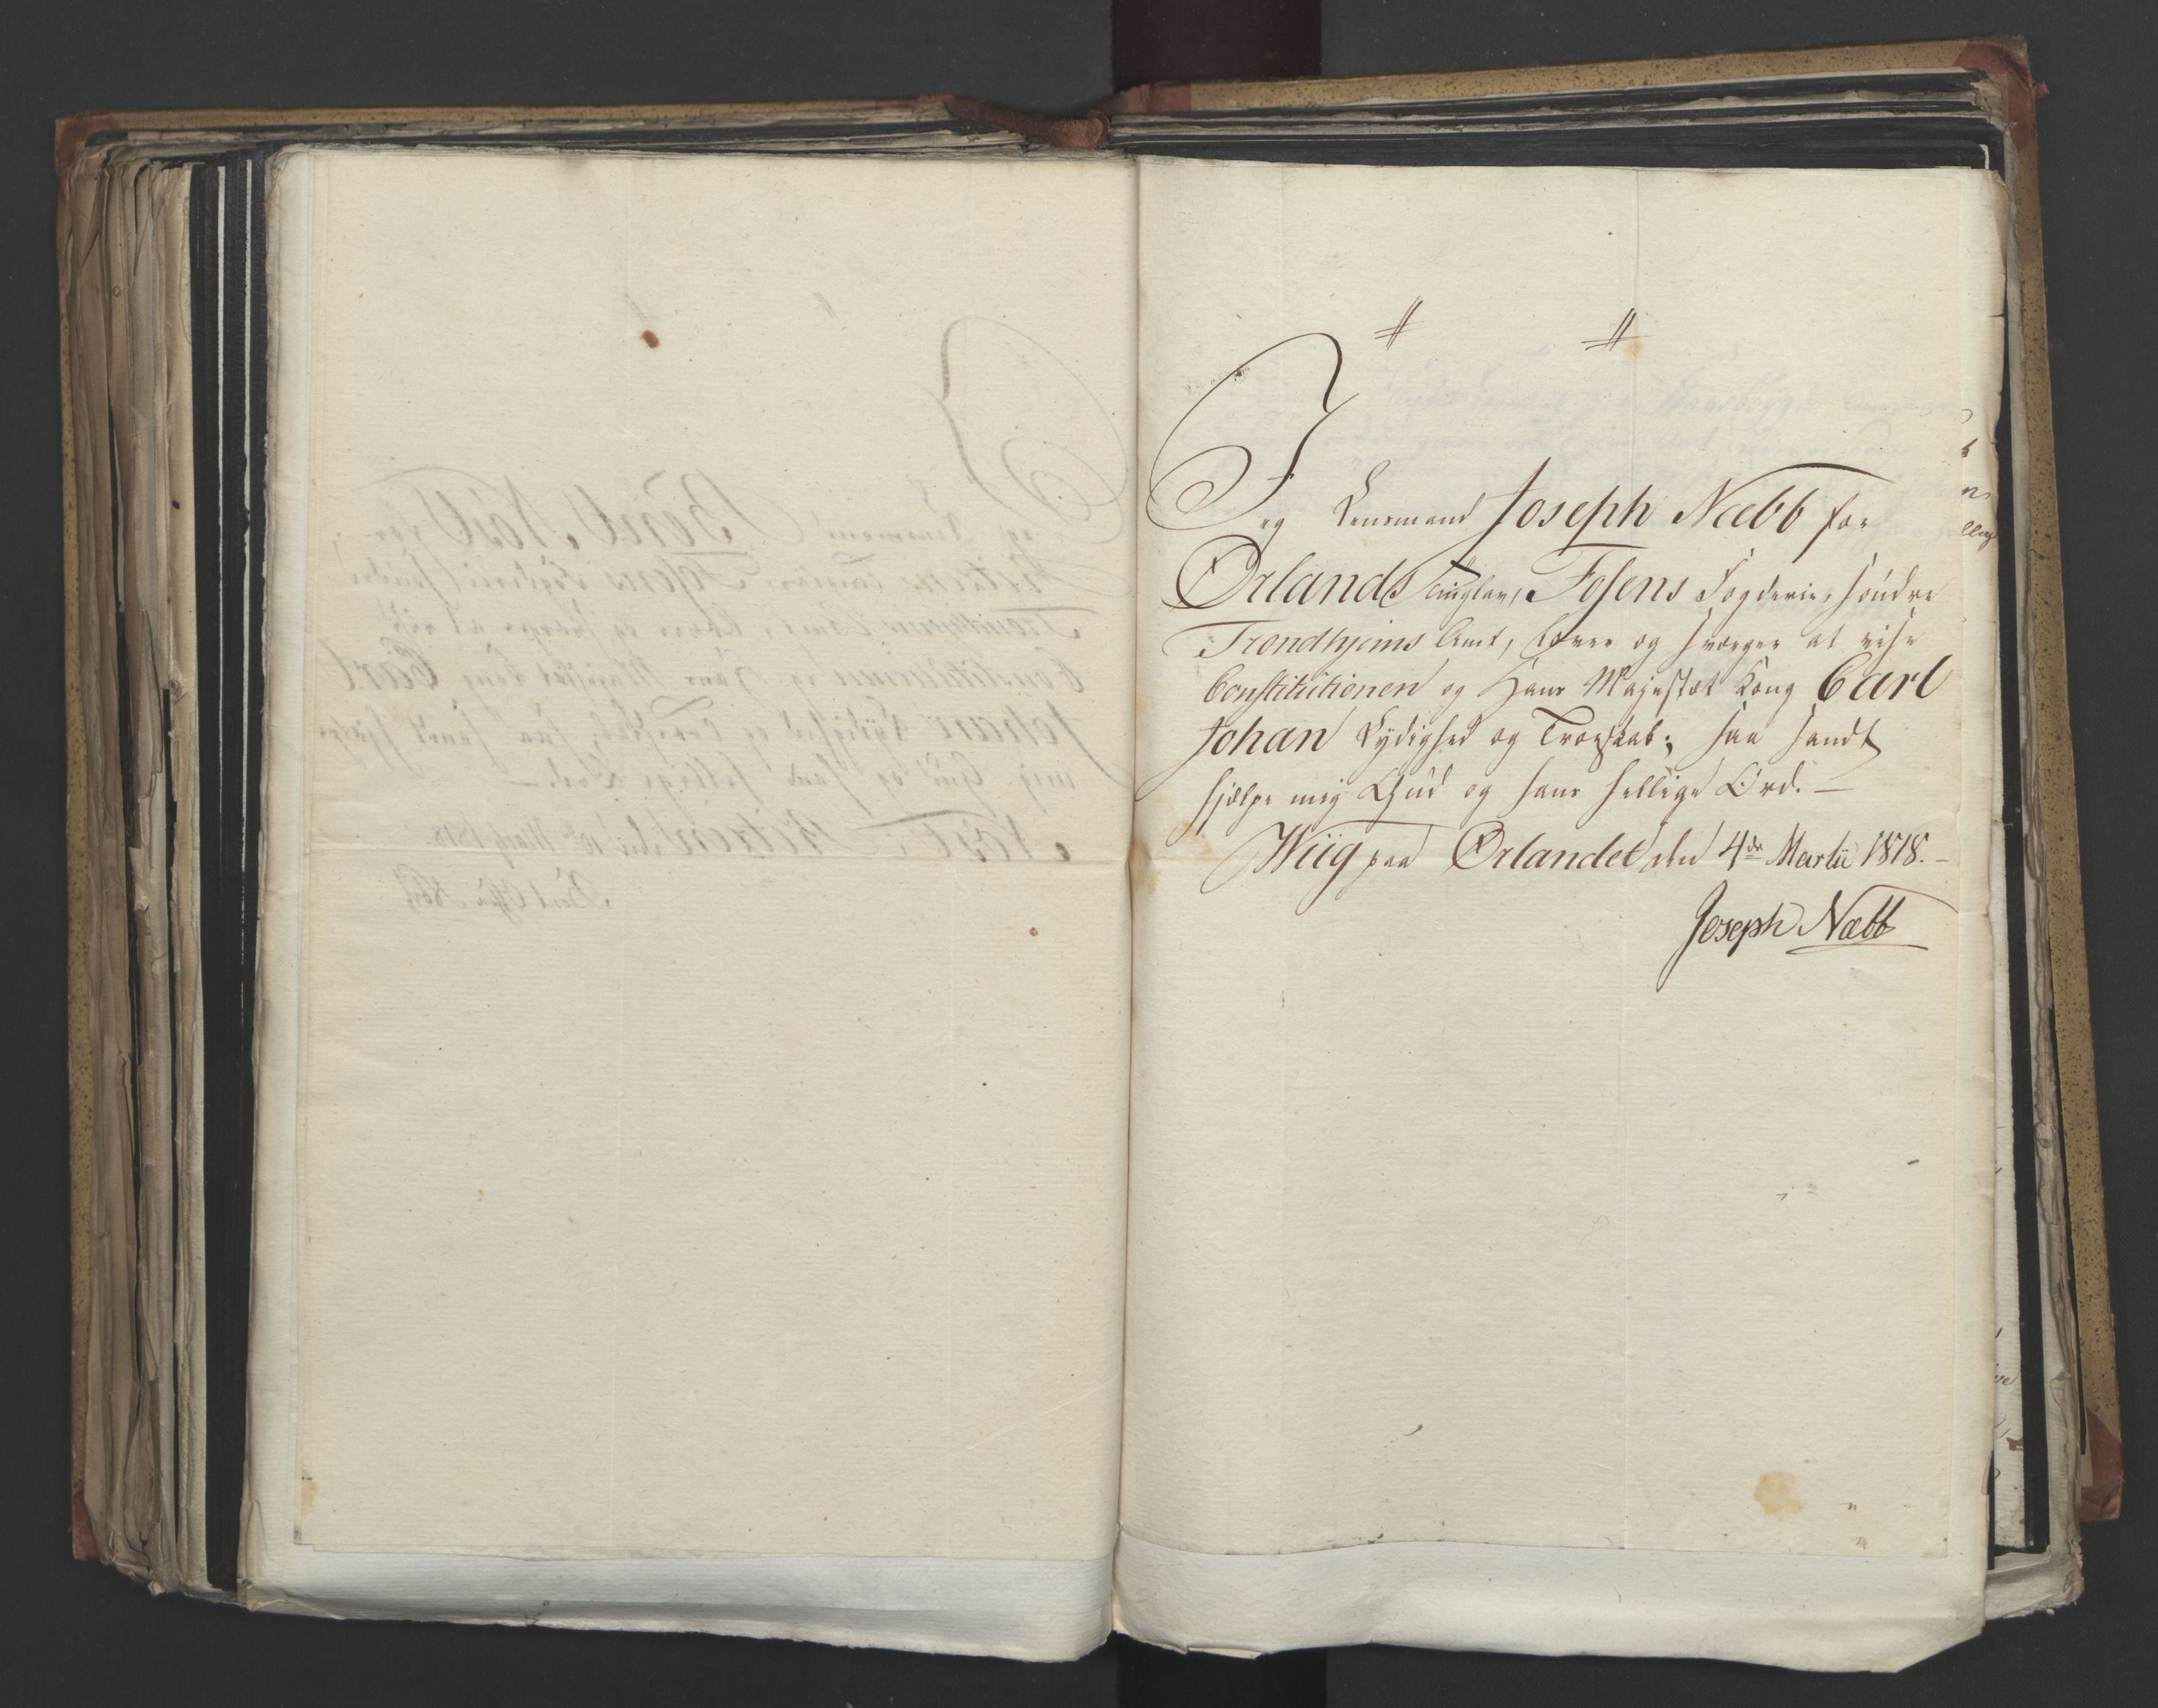 Jeg Lensmand Joseph Næbb for
Ørlands Tinglav, Fosens Fogderie, søndre
Trondhjems Amt, lover og sværger at vise
Constitutionen og Hans Majestæt Kong Carl
Johan Lydighed og Troeskab; saa sandt
hjelpe mig Gud og hans hellige Ord. —
Wiig paa Ørlandet den 4de Martii 1818. —
Joseph Næbb